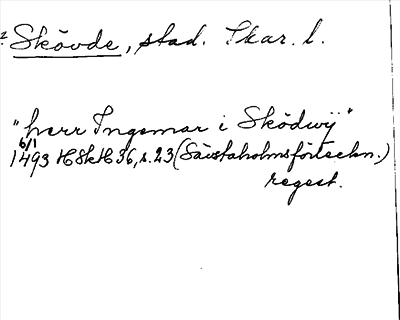 ? Skövde, stad. Skar. l.
"herr Ingemar i Sködwij"
6/1
1493 HSkH 36, s. 23 (Sävstaholmsförteckn.)
regest.